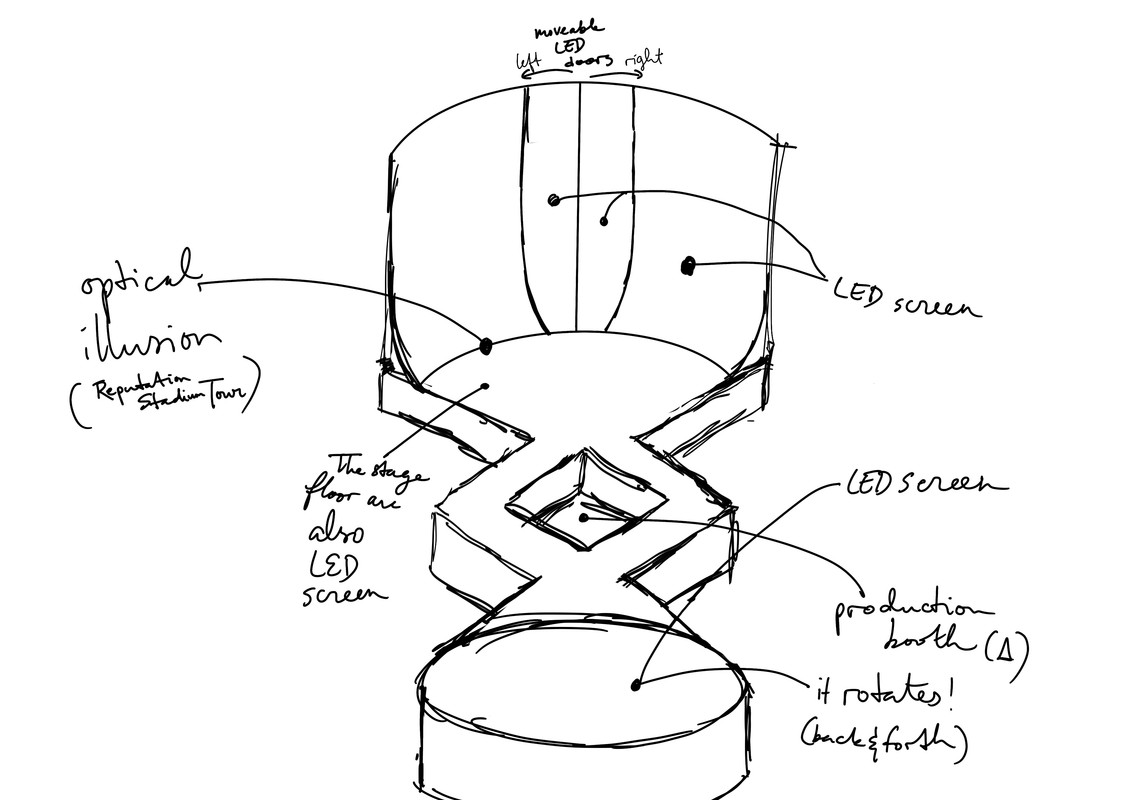 moveable
LED
doors
left
right
LED screen
optical
illusion
(Reputation
Stadium Tour)
The stage
floor are
also
LED
screen
LED screen
production
booth (Δ)
it rotates!
(back & forth)